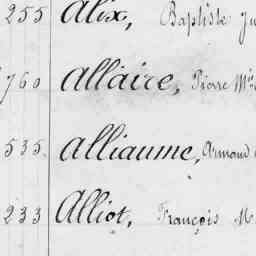 255 Alix, Baptiste Ju
760 Allaire, Pierre Mie
535 Alliaume, Armand
233 Alliot, François M